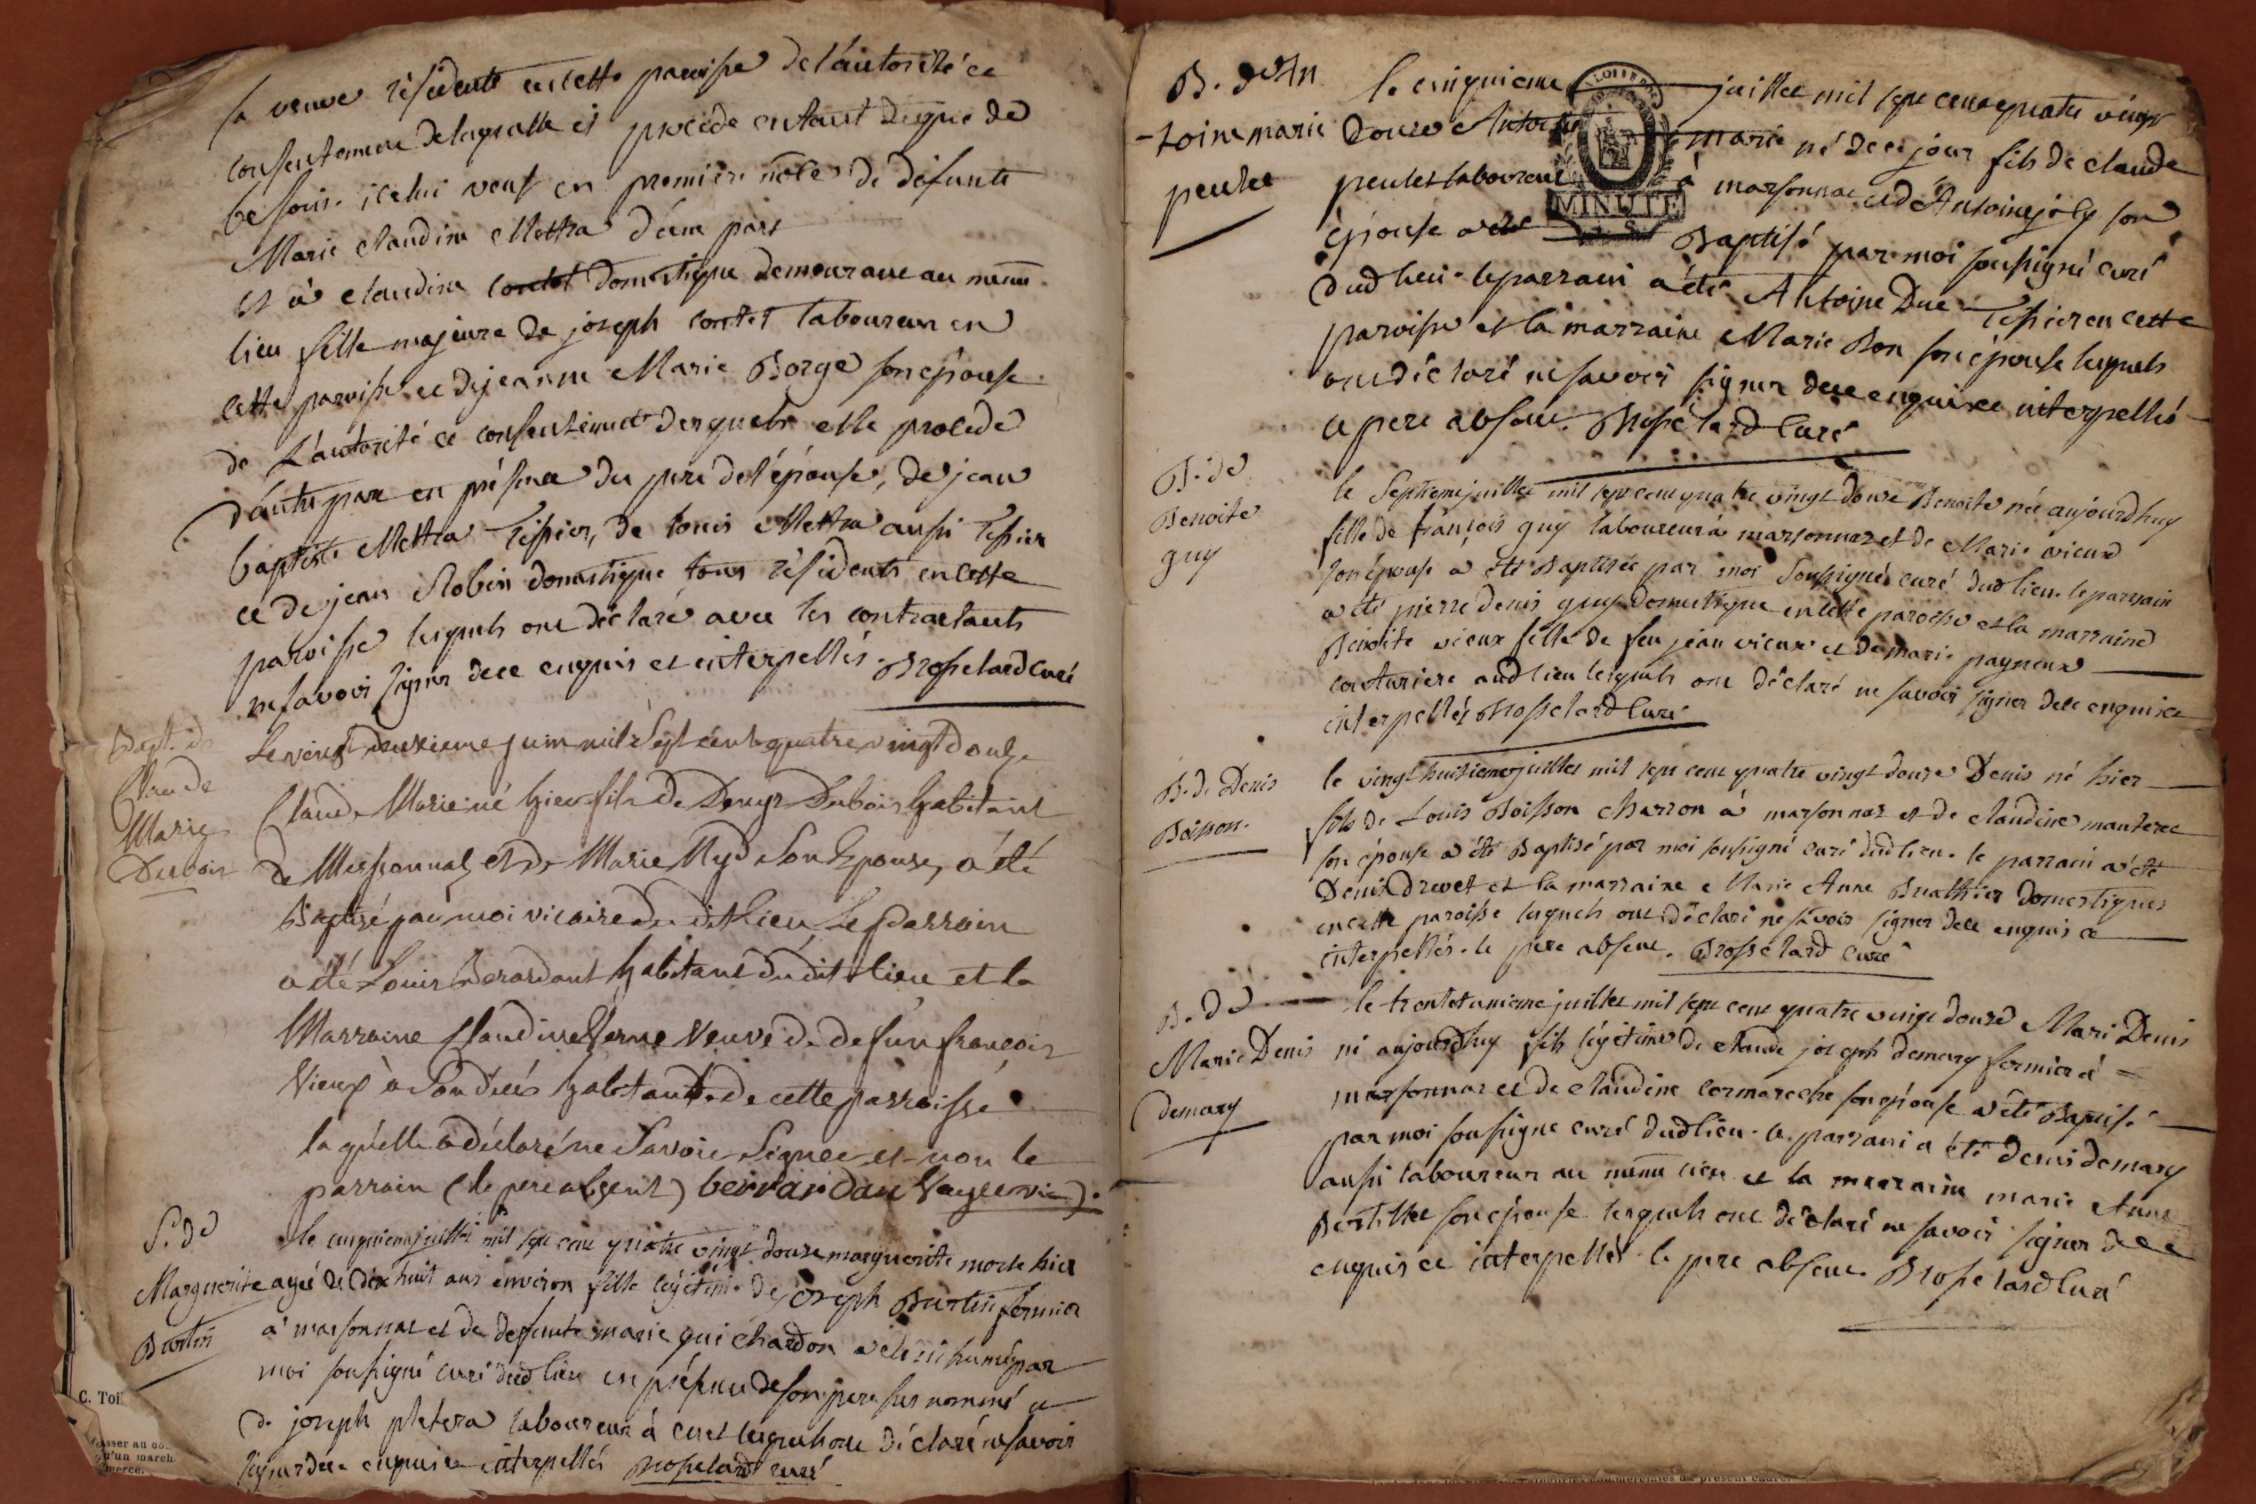 sa veuve résidente en cette paroisse de l'autorité et
consentement de laquelle il procede entant que de
besoin. icelui veuf en premieres nôces de défunte
Marie Claudine Mettra d'une part
et à Claudine Contet domestique demeurant au même
lieu fille majeure de joseph Contet laboureur en
cette paroisse et de jeanne Marie Borge son épouse
de l'autorité et consentement desquels elle procede
d'autre part en présence du pere de l'épouse, de jean
baptiste Mettra Tissier, de louis Mettra aussi Tissier
et de jean Robin domestique tous résidents en cette
paroisse lesquels ont déclaré avec les contractants
ne savoir signer de ce enquis et interpellés. Brosselard curé
Bapt. de
Claude
Marie
Dubois
Le vingt deuxieme juin mil Sept cent quatre vingt douze
Claude Marie né hier fils de Denys Dubois habitant
de Marsonnaz et de Marie Nyd Son Epouse, a été
Baptisé par moi vicaire du dit Lieu Le Parrain
a été Louis Berardant habitant du dit lieu et la
Marraine Claudine Verne Veuve de defun françois
Vieux à Son décés habitante de cette parroisse
laquelle a déclaré ne Savoir Signer et non le
parrain (le pere absent)
S. de
Marguerite
Burtin
le cinquieme juillet mil sept cent quatre vingt douze marguerite morte hier
agée de dix huit ans environ fille légitime de joseph Burtin fermier
à marsonnaz et de defunte marie guichardon a été inhumée par
moi soussigné curé dud lieu en présence de son pere sus nommé et
de joseph pletera laboureur à cuet lesquels ont déclaré ne savoir
signer de ce enquis et interpellés Brosselard curé
C. Toi
B. d'An
-toine marie
peulet
le cinquieme juillet mil sept cent quatre vingt
douze Antoine marie né de ce jour fils de claude
peulet laboureur à marsonnaz et d'Antoine joly son
épouse a été Baptisé par moi soussigné curé
MINUTE
dud lieu. le parrain a été Antoine Duc Tissier en cette
paroisse et la marraine Marie Bon son épouse lesquels
ont déclaré ne savoir signer de ce enquis et interpellés
le pere absent. Brosselard Curé
B. de
Benoite
guy
le Septieme juillet mil sept cent quatre vingt douze Benoite née aujourdhuy
fille de françois guy laboureur à marsonnaz et de Marie vieux
son épouse a été Baptisée par moi Soussigné curé dud lieu. le parrain
a été pierre denis guy domestique en cette paroisse et la marraine
Benoite vieux fille de feu jean vieux et de marie payneux
couturiere aud lieu lesquels ont déclaré ne savoir signer de ce enquis et
interpellés Brosselard Curé
B. de Denis
Boisson.
le vingt huitieme juillet mil sept cent quatre vingt douze Denis né hier
fils de Louis Boisson charron à marsonnaz et de claudine manteret
son épouse a été Baptisé par moi soussigné curé dud lieu. le parrain a été
Denis Drevet et la marraine Marie Anne Buathier domestiques
en cette paroisse lesquels ont déclaré ne savoir signer de ce enquis et
interpellés. le pere absent. Brosselard curé
B. de
Marie Denis
demary
le trente unieme juillet mil sept cent quatre vingt douze Marie Denis
né aujourdhuy fils légitime de claude joseph demary fermier à
marsonnaz et de claudine cormareche son épouse a été Baptisé
par moi soussigné curé dud lieu. le parrain a été denis demary
aussi laboureur au même lieu et la marraine marie Anne
Bertillet son épouse lesquels ont déclaré ne savoir signer de ce
enquis et interpellés le pere absent. Brosselard Curé